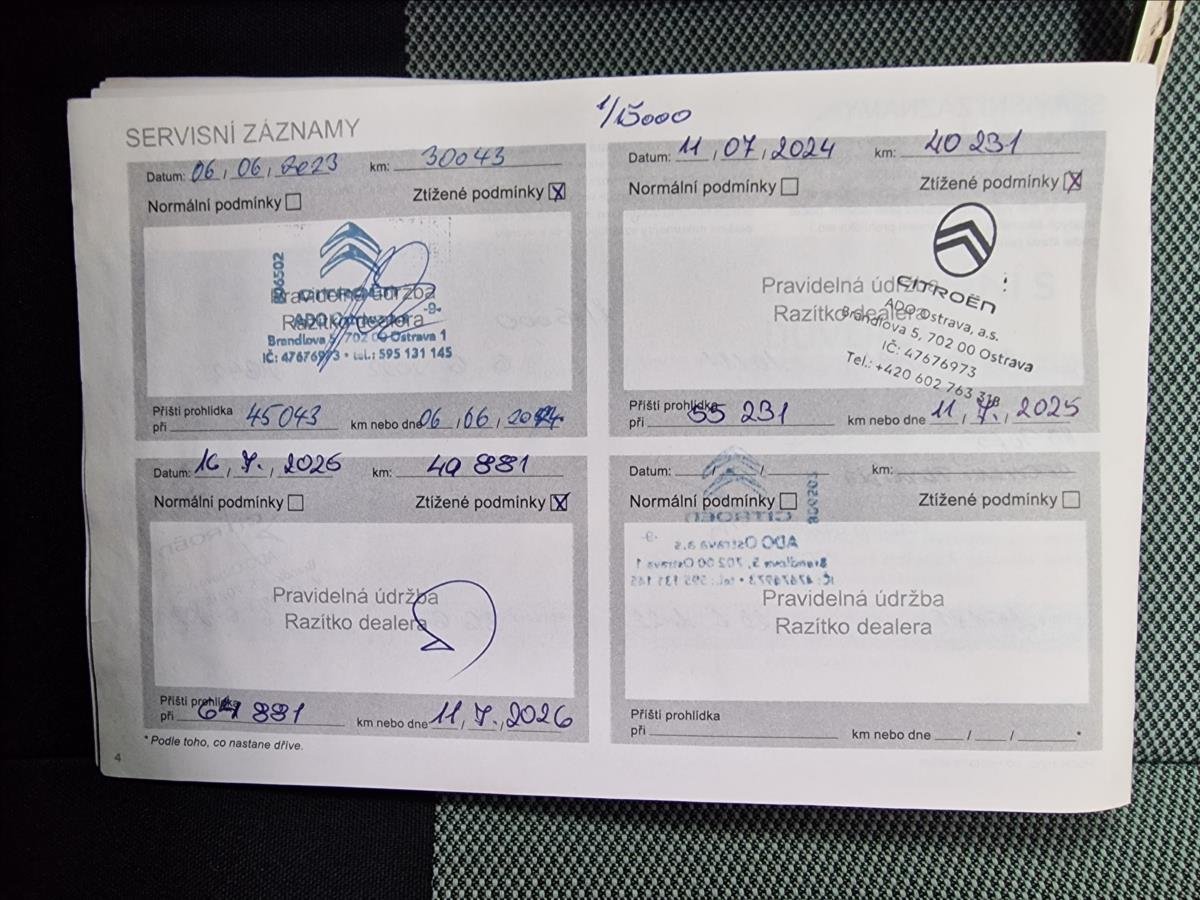 1/15000
SERVISNÍ ZÁZNAMY
Datum: 06 / 06 / 2023 km: 30043
Normální podmínky ☐ Ztížené podmínky ☒
806502
CITROËN
Pravidelná údržba
Razítko dealera
ADO Ostrava -9-
Brandlova 5, 702 00 Ostrava 1
IČ: 47676973 • tel.: 595 131 145
Příšti prohlidka
při 45043 km nebo dne 06 / 06 / 2024
Datum: 11 / 07 / 2024 km: 40 231
Normální podmínky ☐ Ztížené podmínky ☒
Pravidelná údržba
Razítko dealera
CITROËN
ADO Ostrava, a.s.
Brandlova 5, 702 00 Ostrava
IČ: 47676973
Tel.: +420 602 763 318
Příšti prohlidka
při 55 231 km nebo dne 11 / 7. / 2025
Datum: 16 / 7. / 2025 km: 49 881
Normální podmínky ☐ Ztížené podmínky ☒
Pravidelná údržba
Razítko dealera
Příšti prohlidka
při 64 881 km nebo dne 11 / 7. / 2026
Datum: / / km:
Normální podmínky ☐ Ztížené podmínky ☐
Pravidelná údržba
Razítko dealera
Příšti prohlidka
při km nebo dne / / *
* Podle toho, co nastane dříve.
4